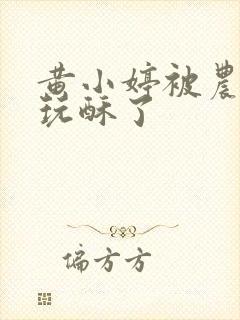 黄小婷被農
玩酥了
偏方方